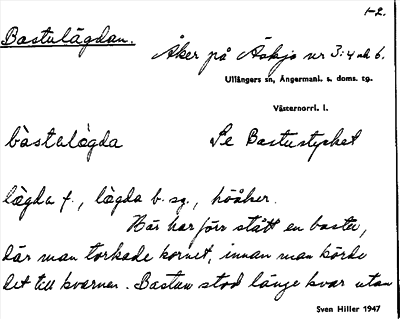 1-2.
Bastulägdan.
Åker på Äskja nr 3:4 och 6.
Ullångers sn, Ångermanl. s. doms. tg.
Västernorrl. l.
bàstulǝgda Se Bastustycket
lǝgda f., lǝgda b. sg., höåker.
Här har förr stått en bastu,
där man torkade kornet, innan man körde
det till kvarnen. Bastun stod länge kvar utan
Sven Hiller 1947